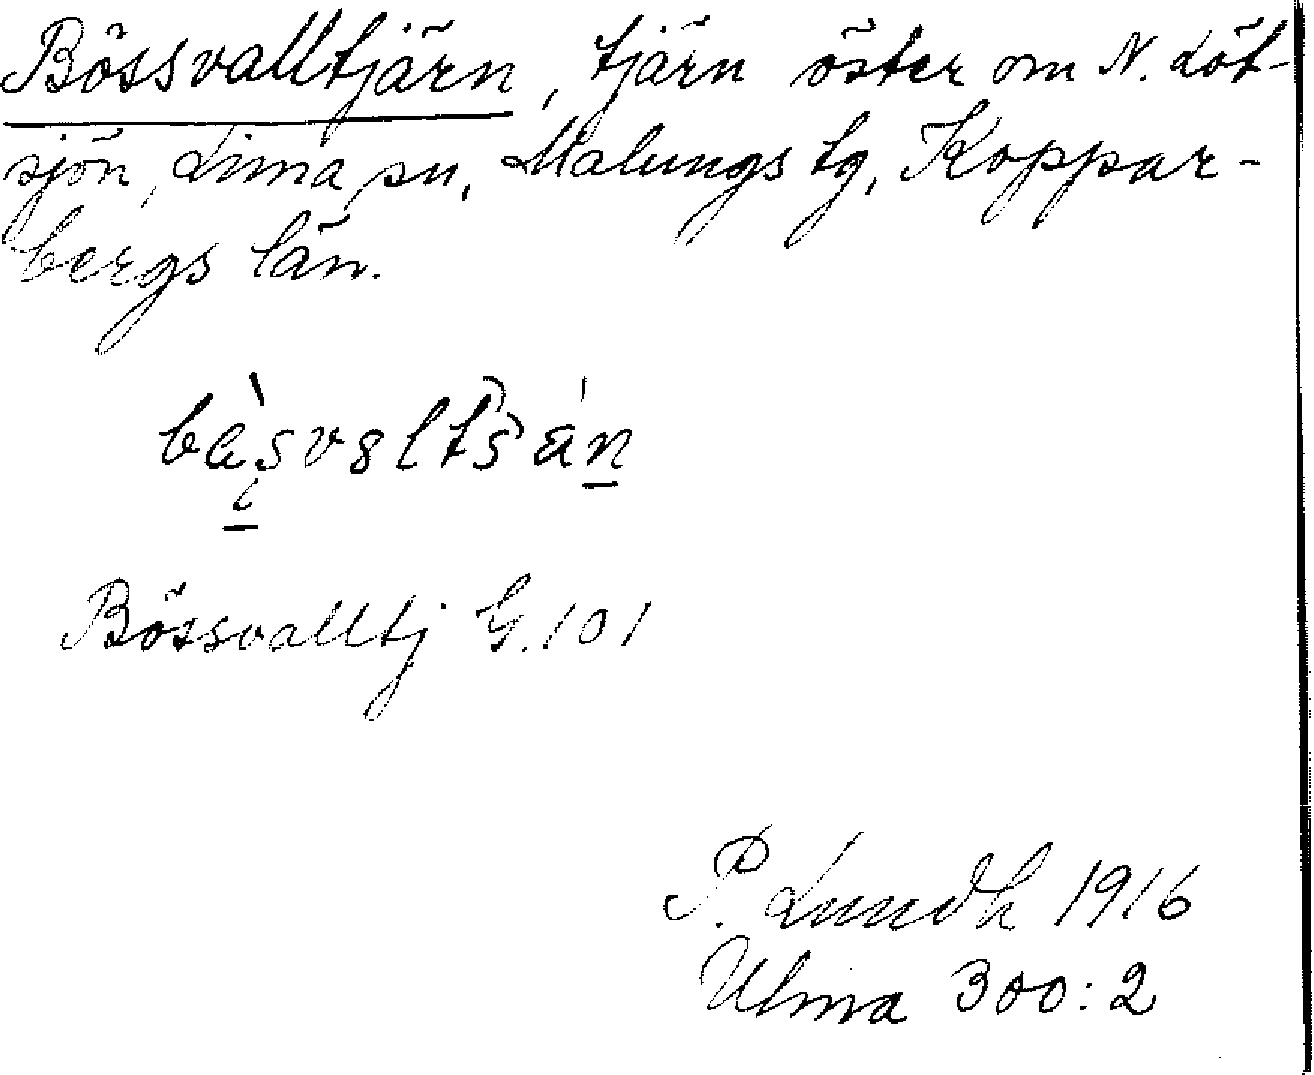 Bössvalltjärn, tjärn öster om N. Löt-
sjön, Lima sn, Malungs tg, Koppar-
bergs län.
Bössvalltj G. 101
P. Lundh 1916
Ulma 300:2